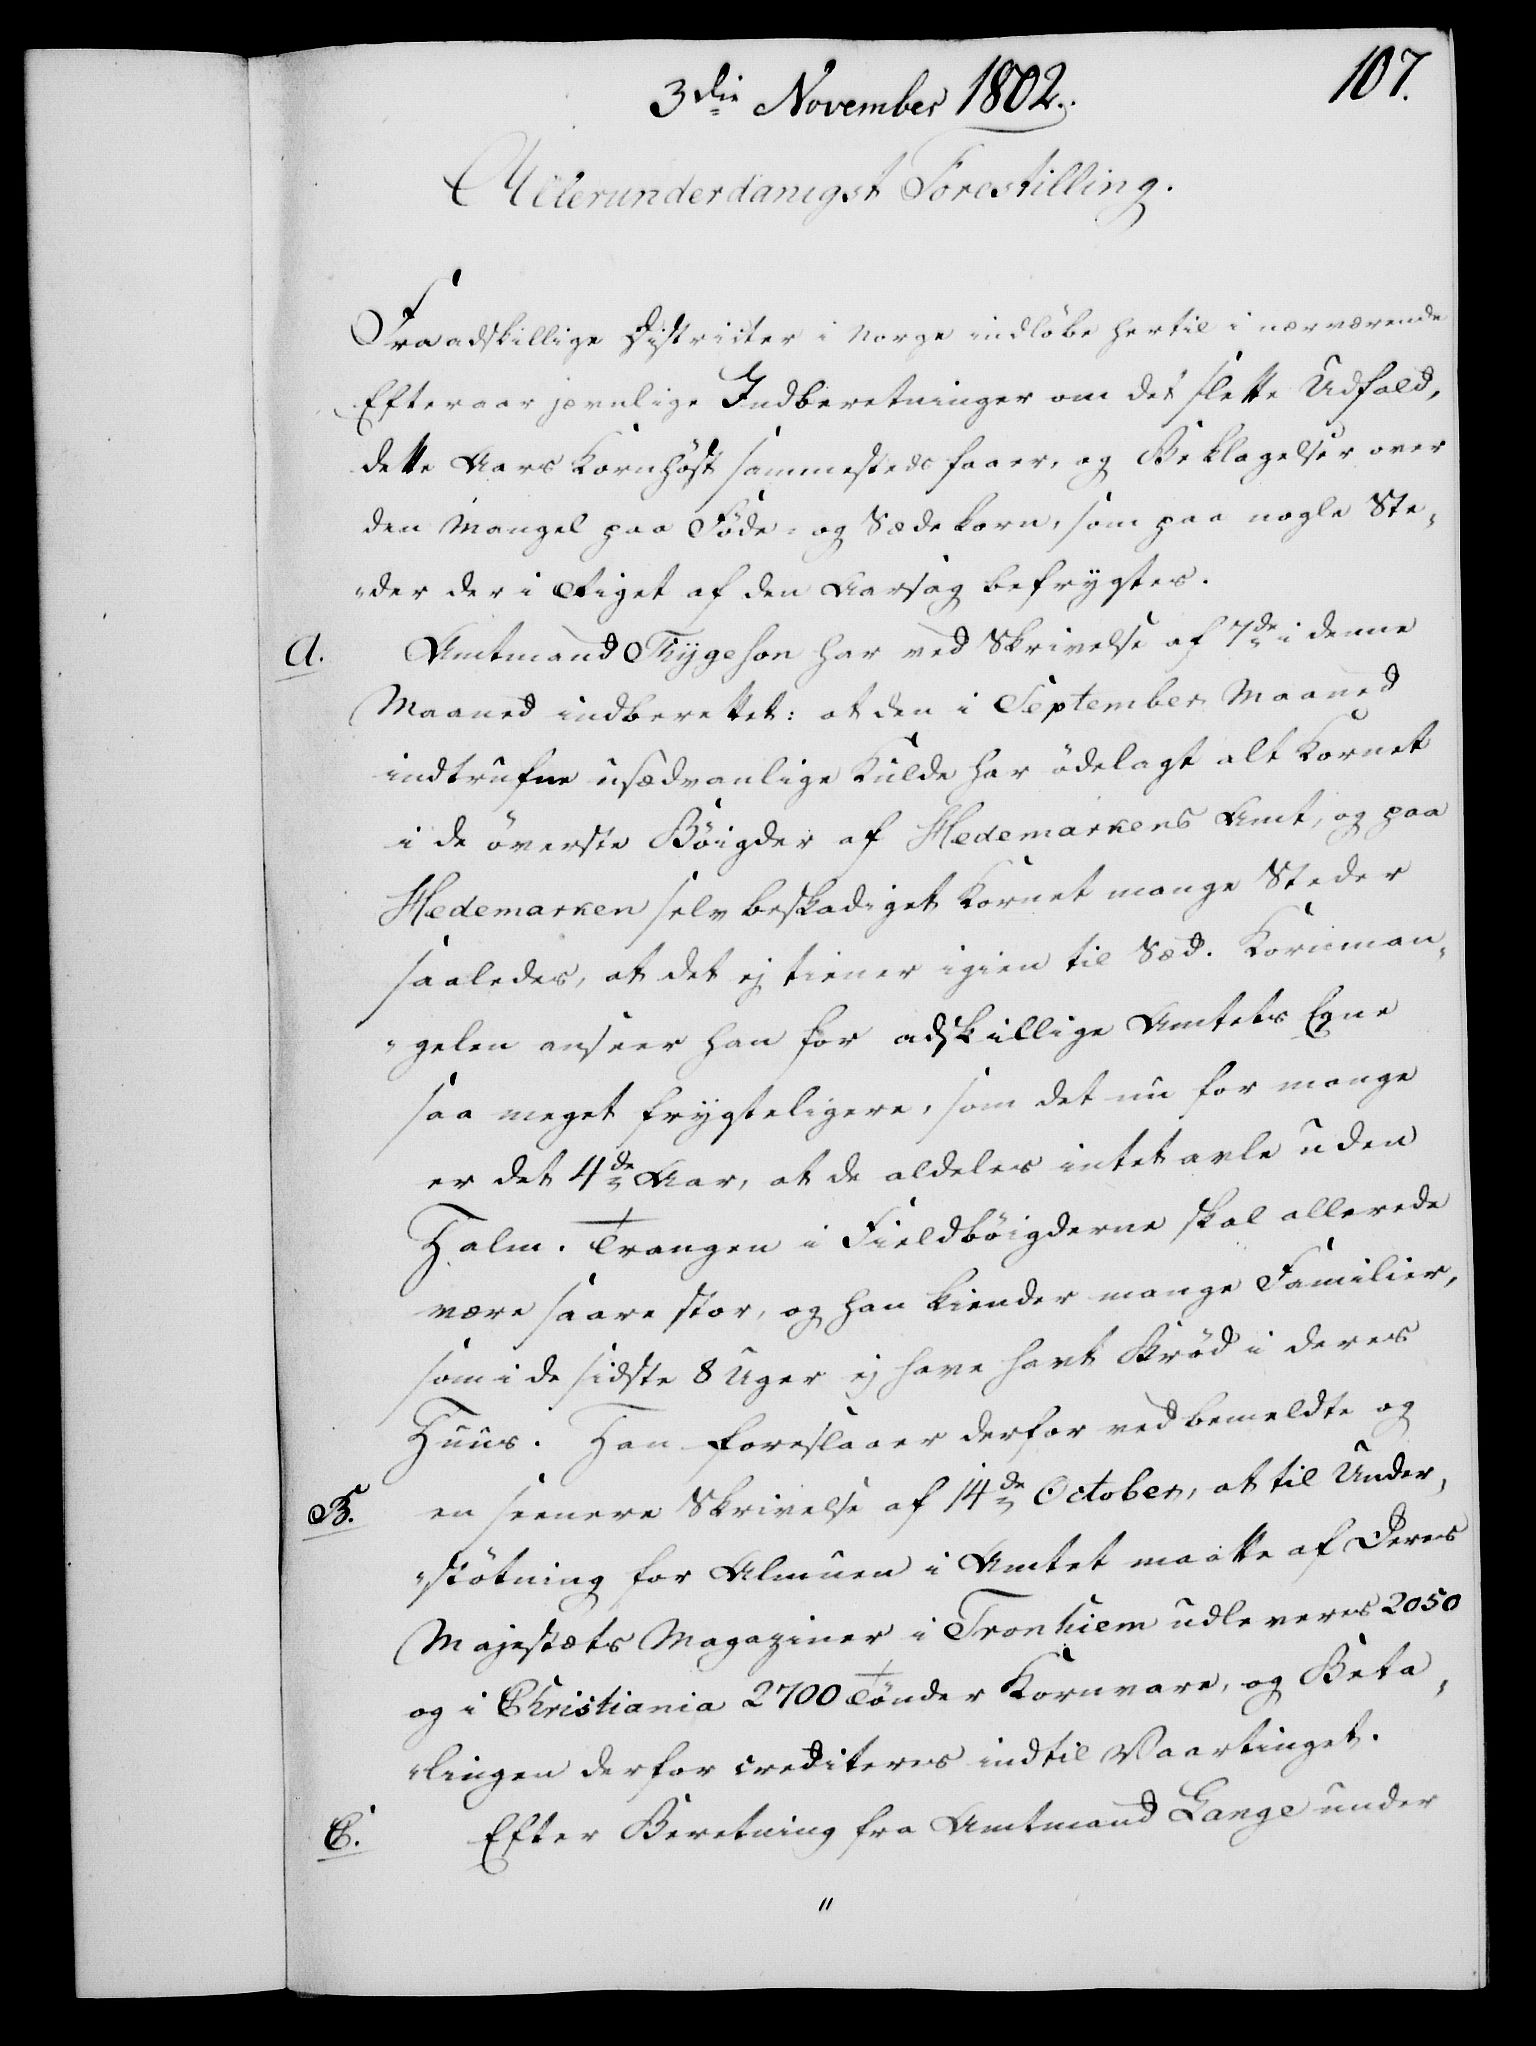 107.
3die November 1802.
Allerunderdanigst Forestilling.
Fra adskillige Districter i Norge indløbe hertil i nærværende
Efteraar jævnlige Indberetninger om det slette Udfald,
dette Aars Kornhöst sammesteds faaer, og Beklagelser over
den Mangel paa Föde- og Sædekorn, som paa nogle Ste-
-der der i Riget af den Aarsag befrygtes.
A. Amtmand Thygeson har ved Skrivelse af 7de i denne
Maaned indberettet: at den i September Maaned
indtrufne usædvanlige Kulde har ödelagt alt Kornet
i de överste Böigder af Hedemarkens Amt, og paa
Hedemarken selv beskadiget Kornet mange Steder
saaledes, at det ej tiener igien til Sæd. Kornman-
-gelen anseer han for adskillige Amtets Egne
saa meget frygteligere, som det nu for mange
er det 4de Aar, at de aldeles intet avle uden
Halm. Trangen i Fieldböigderne skal allerede
være saare stor, og han kiender mange Familier,
som i de sidste 8 Uger ej have havt Bröd i deres
Huus. Han foreslaaer derfor ved bemeldte og
B. en seenere Skrivelse af 14de October, at til Under-
-stötning for Almuen i Amtet maatte af Deres
Majestæts Magaziner i Tronhiem udleveres 2050
og i Christiania 2700 Tönder Kornvare, og Beta-
-lingen derfor crediteres indtil Vaartinget.
C. Efter Beretning fra Amtmand Lange under
"